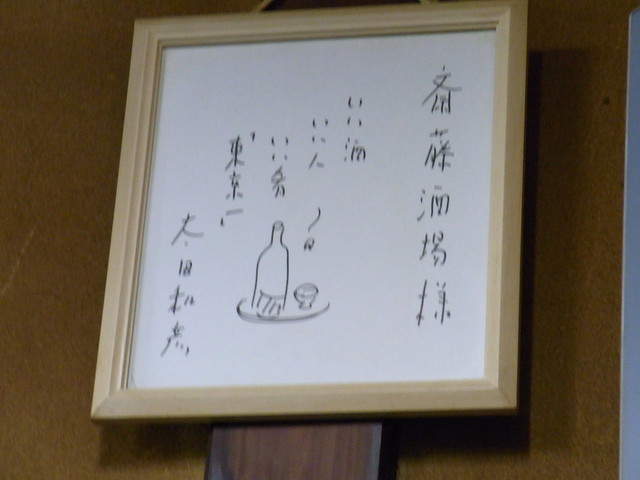 斎藤酒場様
いい酒
いい人
いい肴
東京一
太田和彦